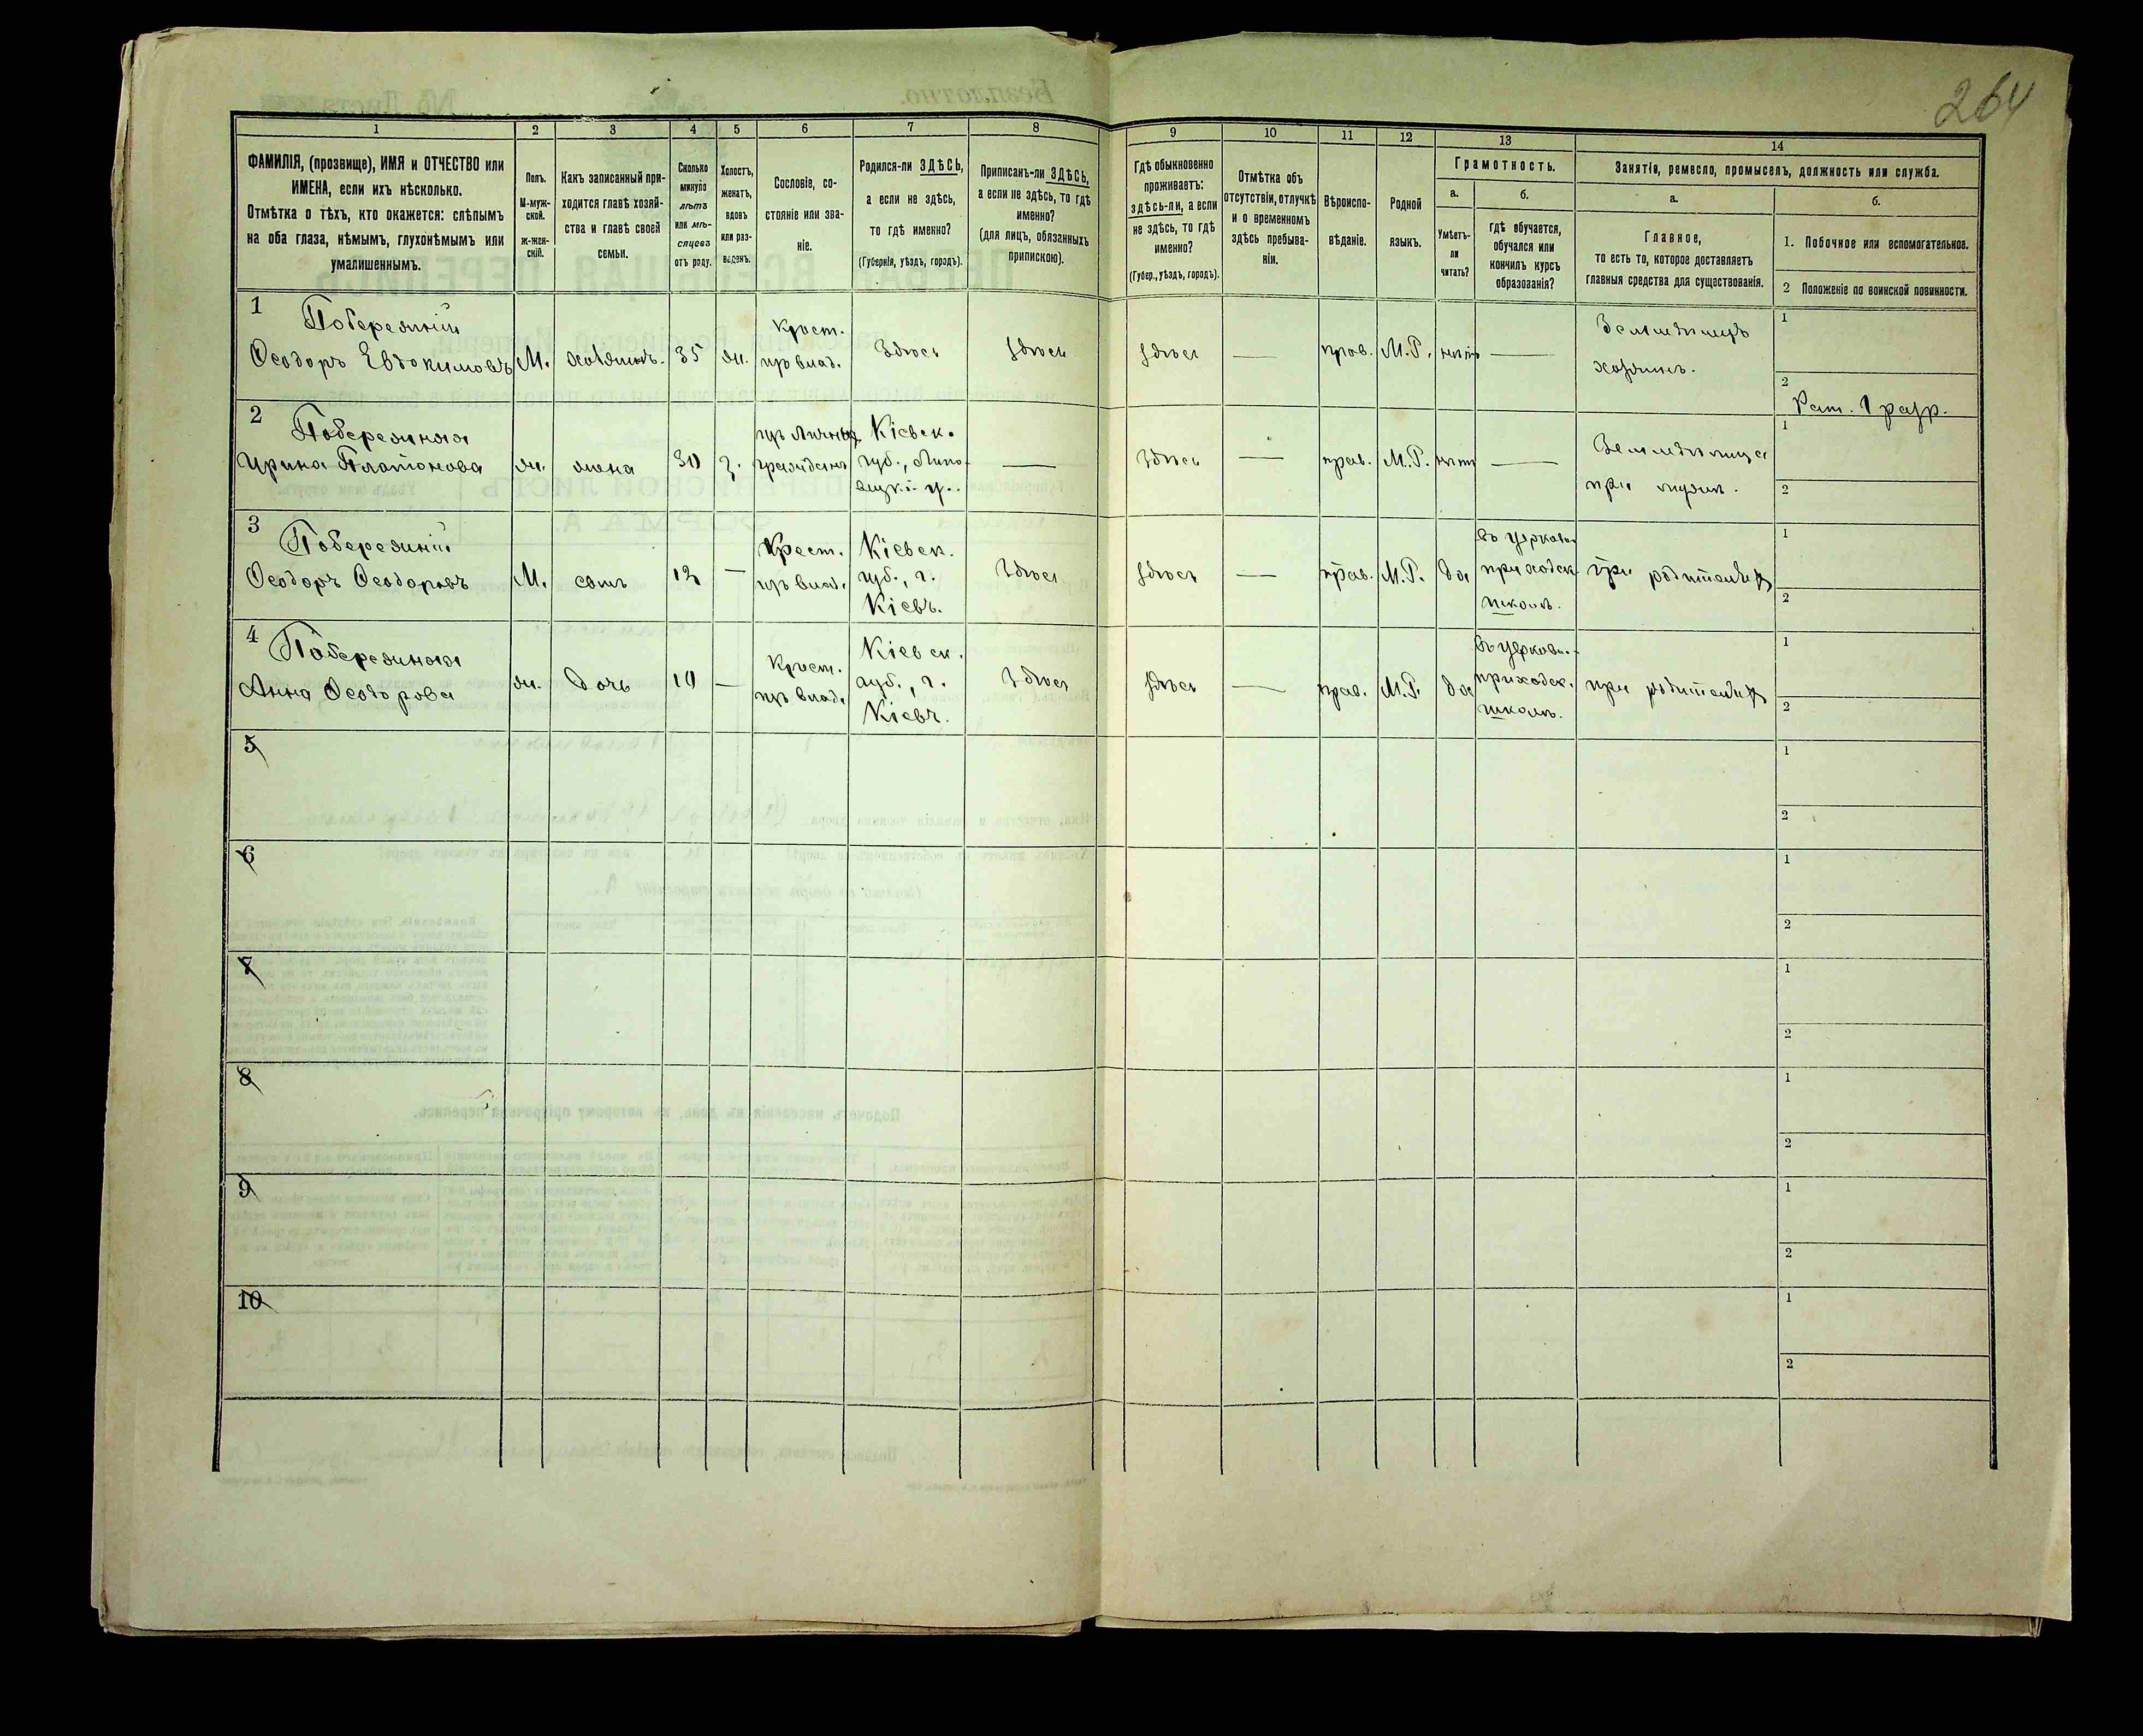 264
1 2 3 4 5 6 7 8 9 10 11 12 13 14
ФАМИЛІЯ, (прозвище), ИМЯ и ОТЧЕСТВО или
ИМЕНА, если ихъ нѣсколько.
Отмѣтка о тѣхъ, кто окажется: слѣпымъ
на оба глаза, нѣмымъ, глухонѣмымъ или
умалишеннымъ.
Полъ.
М-муж-
ской.
ж-жен-
скій.
Какъ записанный при-
ходится главѣ хозяй-
ства и главѣ своей
семьи.
Сколько
минуло
лѣтъ
или мѣ-
сяцевъ
отъ роду.
Холостъ,
женатъ,
вдовъ
или раз-
веденъ.
Сословіе, со-
стояніе или зва-
ніе.
Родился-ли ЗДѢСЬ,
а если не здѣсь,
то гдѣ именно?
(Губернія, уѣздъ, городъ).
Приписанъ-ли ЗДѢСЬ,
а если не здѣсь, то гдѣ
именно?
(для лицъ, обязанныхъ
припискою).
Гдѣ обыкновенно
проживаетъ:
здѣсь-ли, а если
не здѣсь, то гдѣ
именно?
(Губер., уѣздъ, городъ).
Отмѣтка объ
отсутствіи, отлучкѣ
и о временномъ
здѣсь пребыва-
ніи.
Вѣроиспо-
вѣданіе.
Родной
языкъ.
Грамотность.
а.
Умѣетъ-
ли
читать?
б.
гдѣ обучается,
обучался или
кончилъ курсъ
образованія?
Занятіе, ремесло, промыселъ, должность или служба.
а.
Главное,
то есть то, которое доставляетъ
главныя средства для существованія.
б.
1. Побочное или вспомогательное.
2 Положеніе по воинской повинности.
1
Побережній
Ѳеодоръ Евдокимовъ
М.
хозяинъ.
35
ж.
Крест.
изъ влад.
Здѣсь
здѣсь
здѣсь
—
прав.
М.Р.
нѣтъ
—
Земледѣлецъ
хозяинъ.
1
2
Рат. 1 разр.
2
Побережная
Ирина Платонова
ж.
жена
30
з.
изъ личных
граждан
Кіевск.
губ., Липо-
вецкій у.
—
Здѣсь
—
прав.
М.Р.
нѣтъ
—
Земледѣлица
при мужѣ.
1
2
3
Побережній
Ѳеодоръ Ѳеодоровъ
М.
сынъ
12
—
Крест.
изъ влад.
Кіевск.
губ., г.
Кіевъ.
Здѣсь
здѣсь
—
прав.
М.Р.
да
Въ церковн.
приходск.
школѣ.
при родителяхъ
1
2
4
Побережная
Анна Ѳеодорова
ж.
дочь
10
—
Крест.
изъ влад.
Кіевск.
губ., г.
Кіевъ.
Здѣсь
здѣсь
—
прав.
М.Р.
да
Въ церковн.-
приходск.
школѣ.
при родителяхъ
1
2
5
1
2
6
1
2
7
1
2
8
1
2
9
1
2
10
1
2